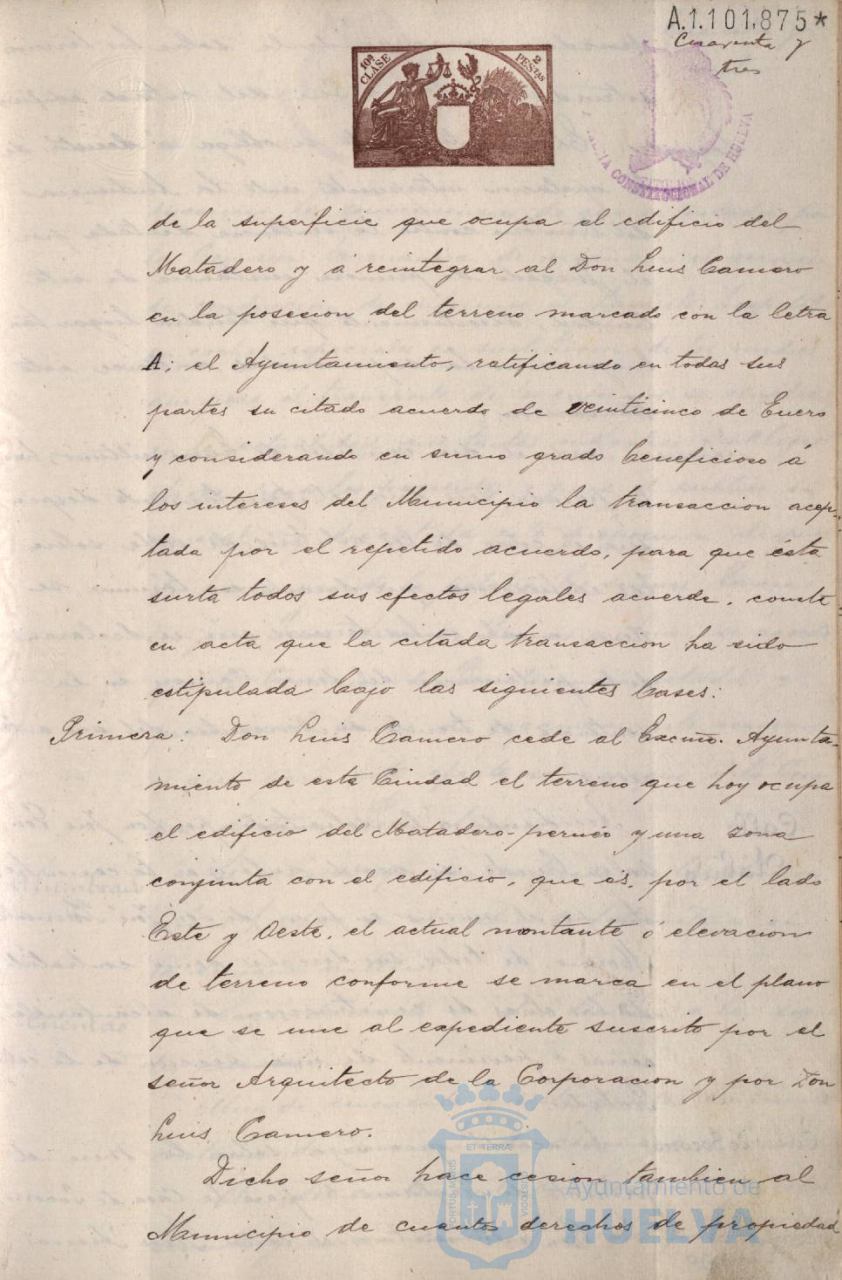 A.1.101.875*
Cuarenta y
tres
10ª CLASE
2 PESETAS
ALCALDIA CONSTITUCIONAL DE HUELVA
de la superficie que ocupa el edificio del
Matadero y á reintegrar al Don Luis Camero
en la posesion del terreno marcado con la letra
A; el Ayuntamiento, ratificando en todas sus
partes su citado acuerdo de veinticinco de Enero
y considerando en sumo grado beneficioso á
los intereses del Municipio la transaccion acep-
tada por el repetido acuerdo, para que ésta
surta todos sus efectos legales acuerde, conste
en acta que la citada transaccion ha sido
estipulada bajo las siguientes bases:
Primera: Don Luis Camero cede al Excmo. Ayunta-
miento de esta Ciudad el terreno que hoy ocupa
el edificio del Matadero-perneo y una zona
conjunta con el edificio, que és, por el lado
Este y Oeste, el actual montante ó elevacion
de terreno conforme se marca en el plano
que se une al expediente suscrito por el
señor Arquitecto de la Corporacion y por Don
Luis Camero.
Dicho señor hace cesion tambien al
Municipio de cuantos derechos de propiedad
Ayuntamiento de
HUELVA